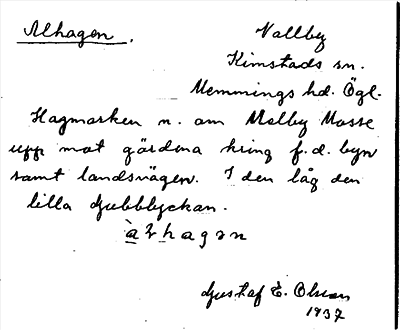 Alhagen. Vallby
Kimstads sn.
Memmings hd. Ögl.
Hagmarken n. om Melby Mosse
upp mot gärdena kring f.d. byn
samt landsvägen. I den låg den
lilla djubblyckan.
àƚhagan
Gustaf E. Olsson
1937